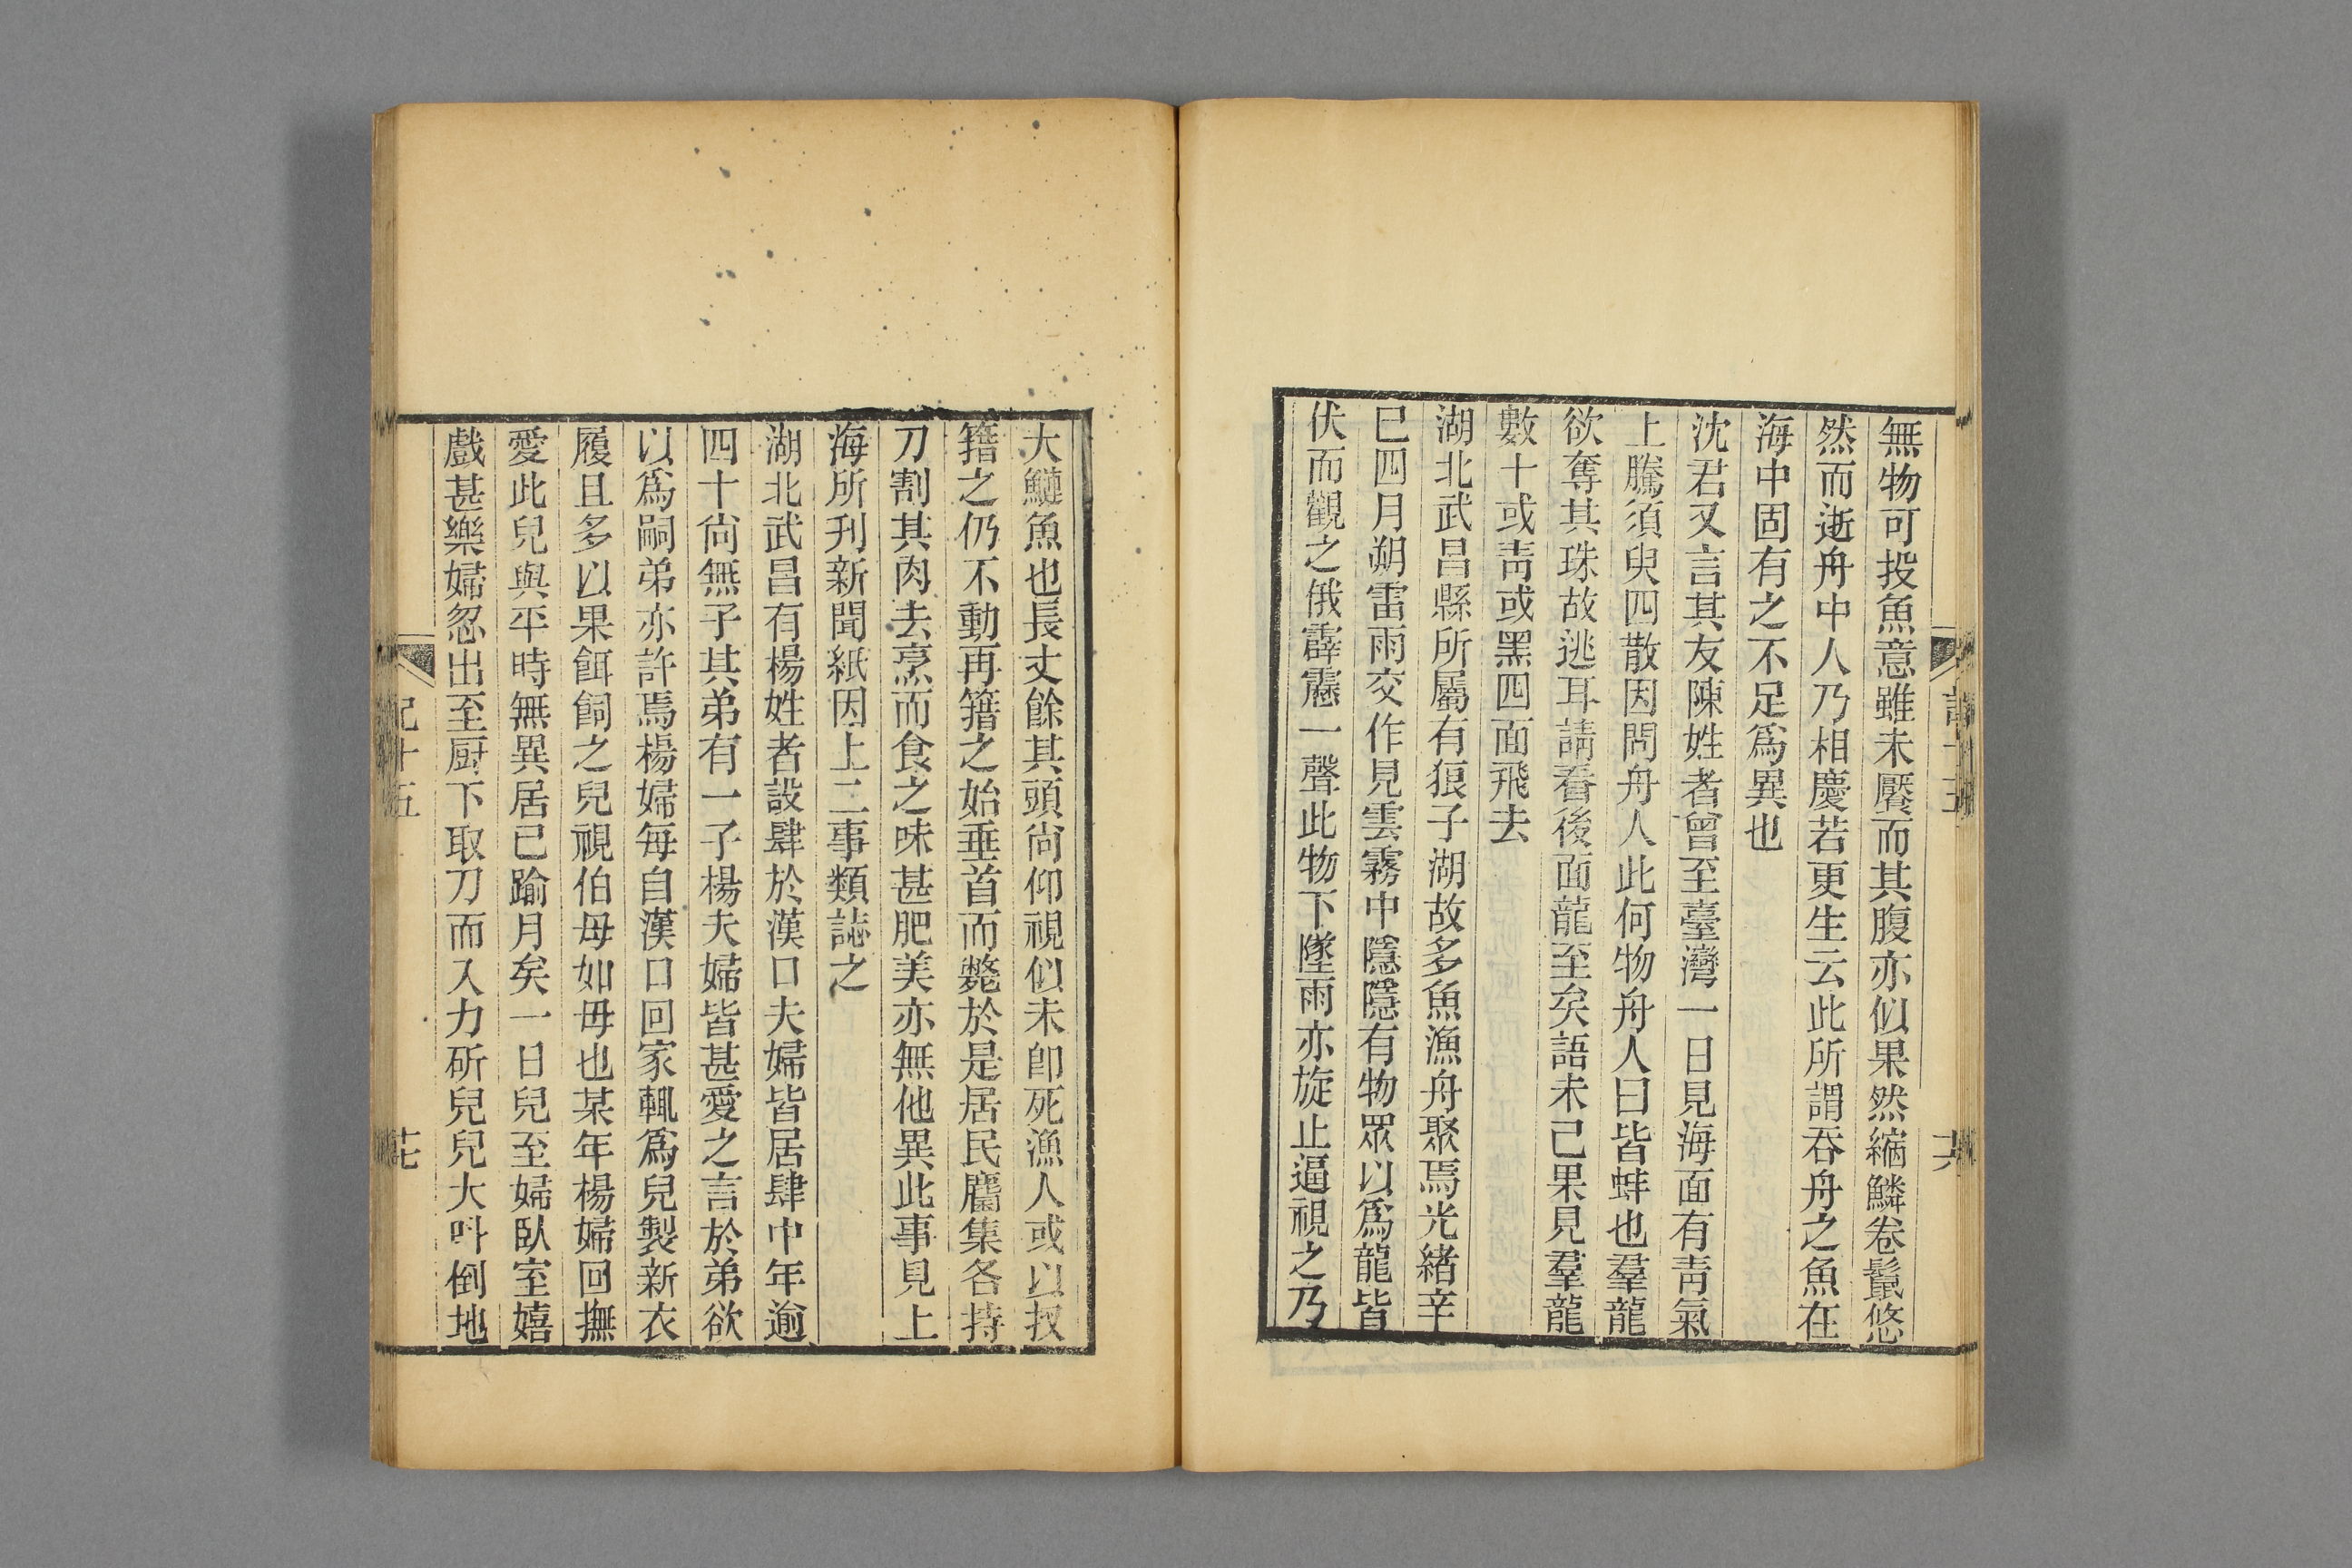 無物可投魚意雖未饜而其腹亦似果然縮鱗卷鬣悠
然而逝舟中人乃相慶若更生云此所謂吞舟之魚在
海中固有之不足爲異也
沈君又言其友陳姓者曾至臺灣一日見海面有靑氣
上騰須臾四散因問舟人此何物舟人曰皆蚌也羣龍
欲奪其珠故逃耳請看後面龍至矣語未已果見羣龍
數十或靑或黑四面飛去
湖北武昌縣所屬有狼子湖故多魚漁舟聚焉光緒辛
巳四月朔雷雨交作見雲霧中隱隱有物眾以爲龍皆
伏而觀之俄霹靂一聲此物下墜雨亦旋止逼視之乃
大鰱魚也長丈餘其頭尙仰視似未卽死漁人或以扠
籍之仍不動再籍之始垂首而斃於是居民麕集各持
刀割其肉去烹而食之味甚肥美亦無他異此事見上
海所刊新聞紙因上二事類誌之
湖北武昌有楊姓者設肆於漢口夫婦皆居肆中年逾
四十尙無子其弟有一子楊夫婦皆甚愛之言於弟欲
以爲嗣弟亦許焉楊婦每自漢口回家輒爲兒製新衣
履且多以果餌飼之兒視伯母如母也某年楊婦回撫
愛此兒與平時無異居已踰月矣一日兒至婦臥室嬉
戲甚樂婦忽出至厨下取刀而入力斫兒兒大呌倒地
記十五